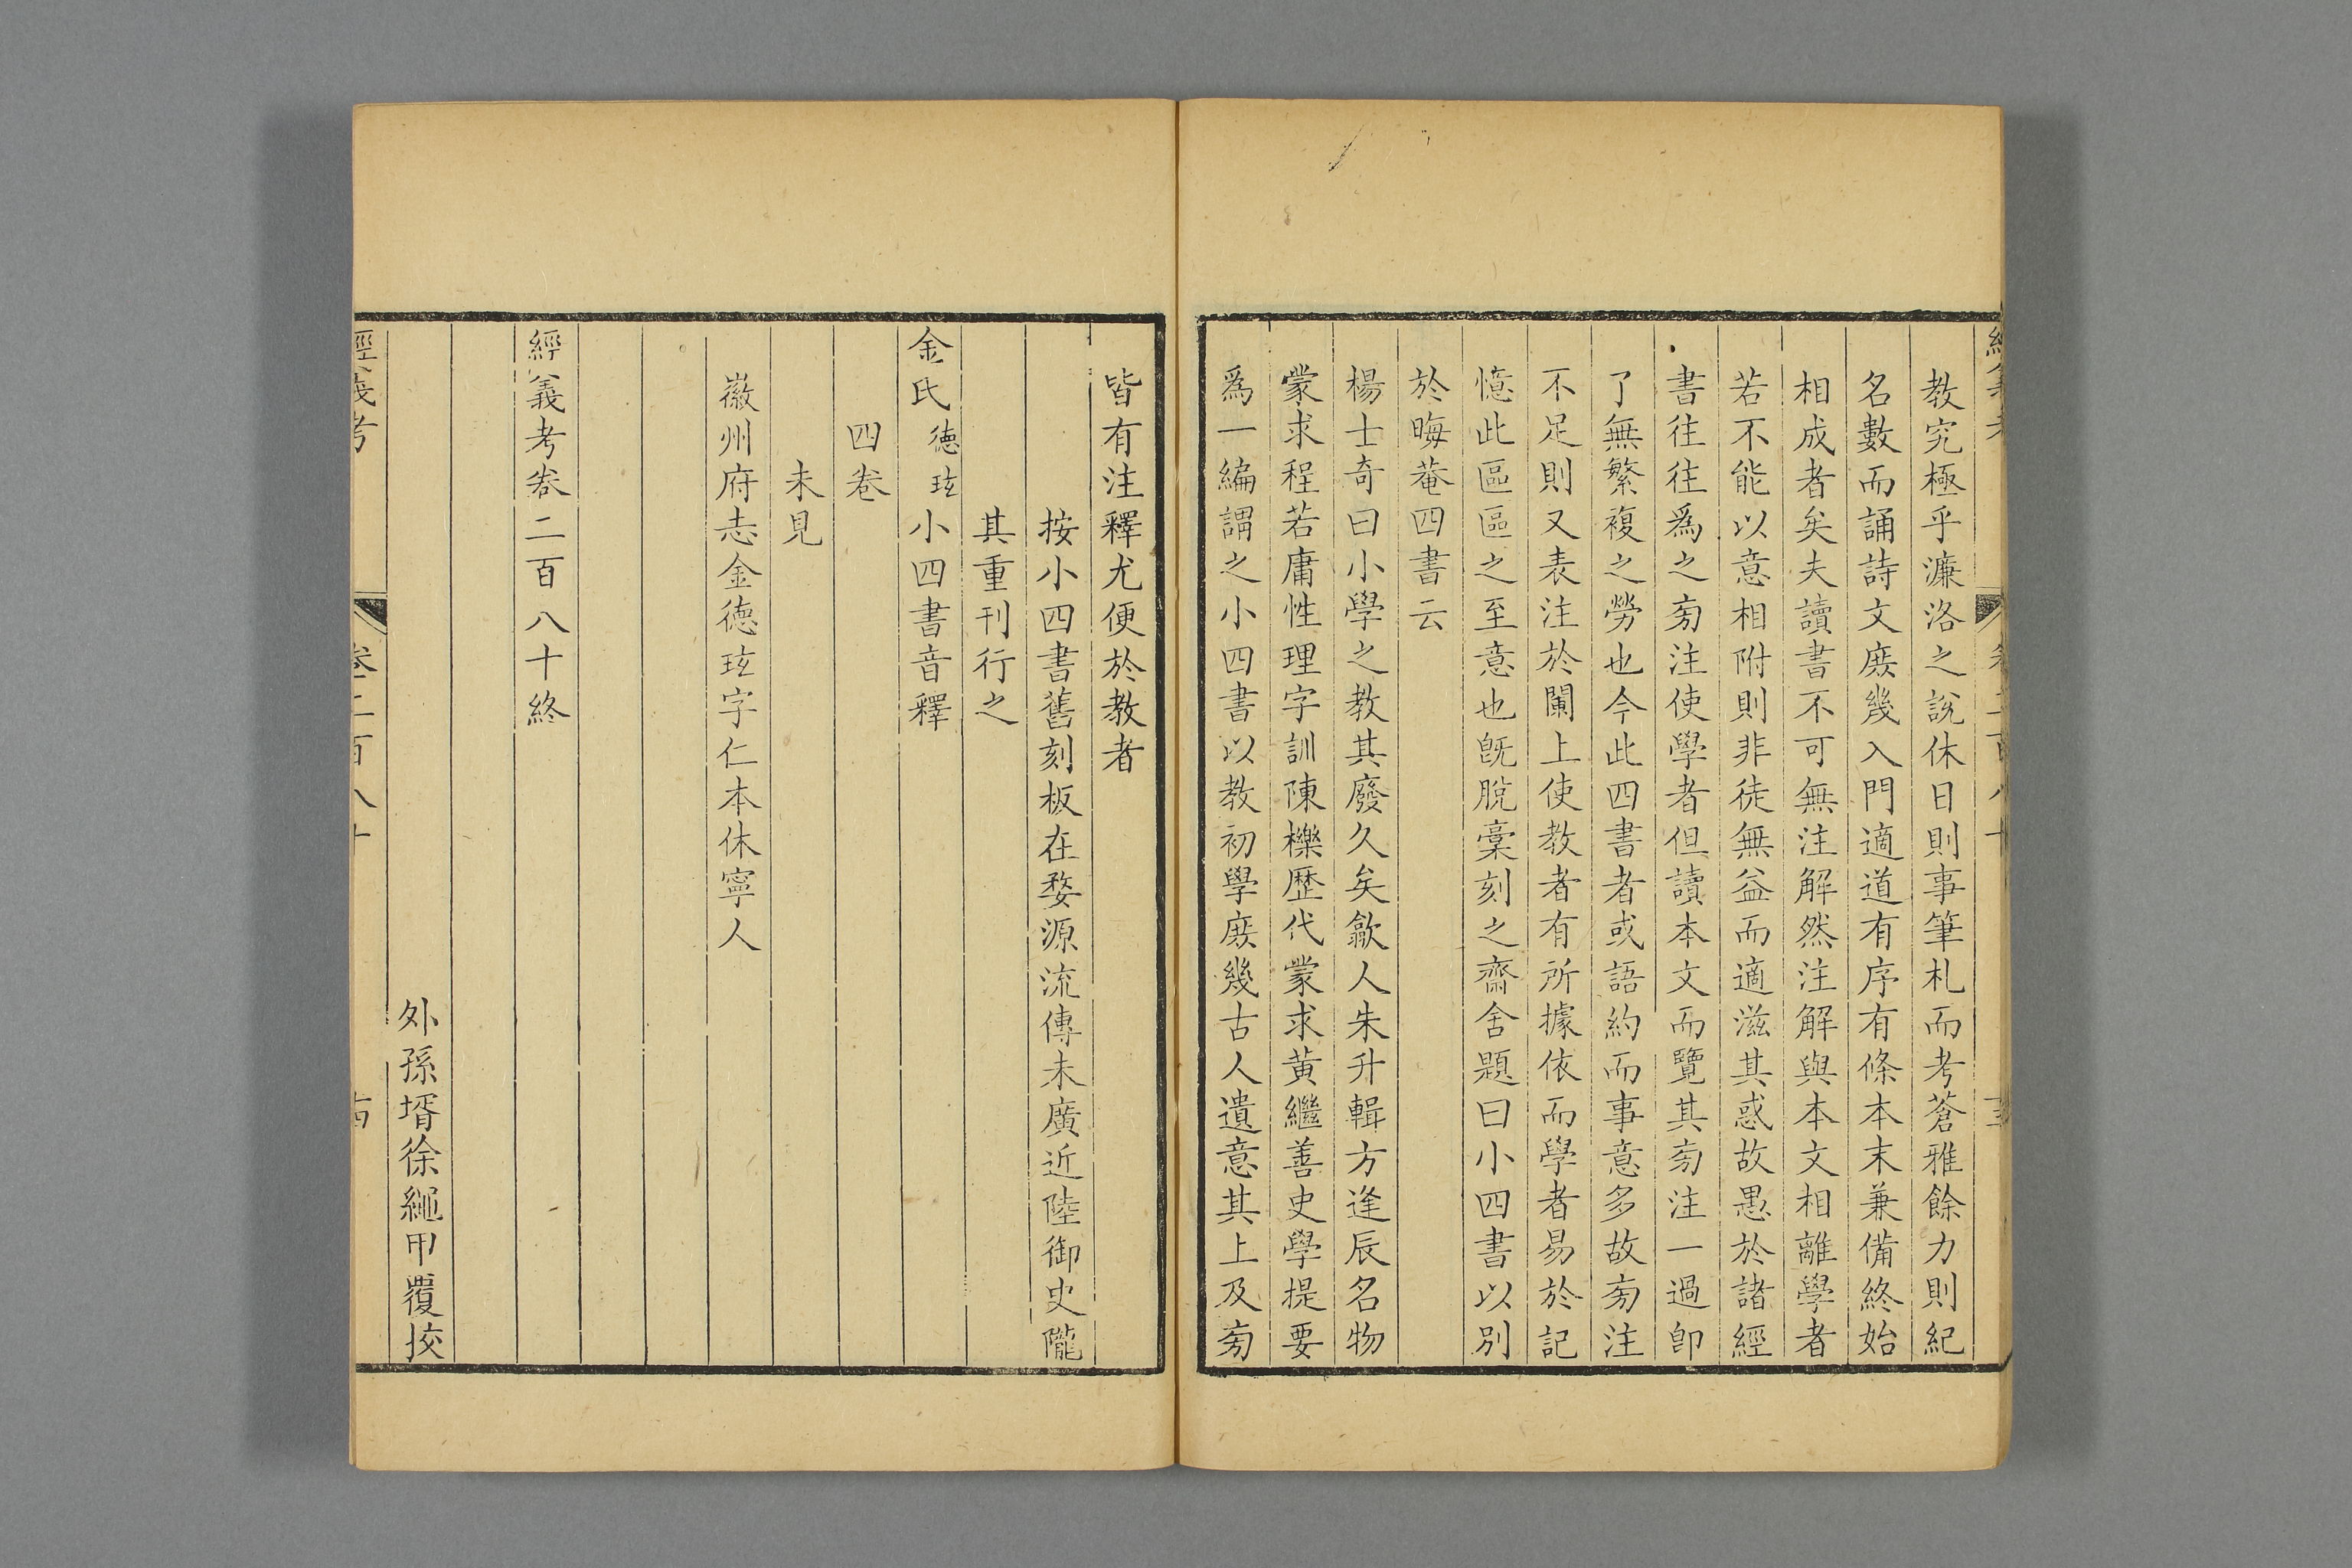 教究極乎濂洛之說休日則事筆札而考蒼雅餘力則紀
名數而誦詩文庻幾入門適道有序有條本末兼備終始
相成者矣夫讀書不可無注解然注解與本文相離學者
若不能以意相附則非徒無益而適滋其惑故愚於諸經
書往往爲之旁注使學者但讀本文而覽其旁注一過卽
了無繁複之勞也今此四書者或語約而事意多故旁注
不足則又表注於闌上使教者有所據依而學者易於記
憶此區區之至意也旣脫稾刻之齋舍題曰小四書以別
於晦菴四書云
楊士奇曰小學之教其廢久矣歙人朱升輯方逢辰名物
蒙求程若庸性理字訓陳櫟歷代蒙求黄繼善史學提要
爲一編謂之小四書以教初學庻幾古人遺意其上及旁
皆有注釋尤便於教者
按小四書舊刻板在婺源流傳未廣近陸御史隴
其重刊行之
金氏德玹小四書音釋
四卷
未見
徽州府志金德玹字仁本休寧人
經義考卷二百八十終
外孫壻徐繩甲覆挍
經義考
卷二百八十